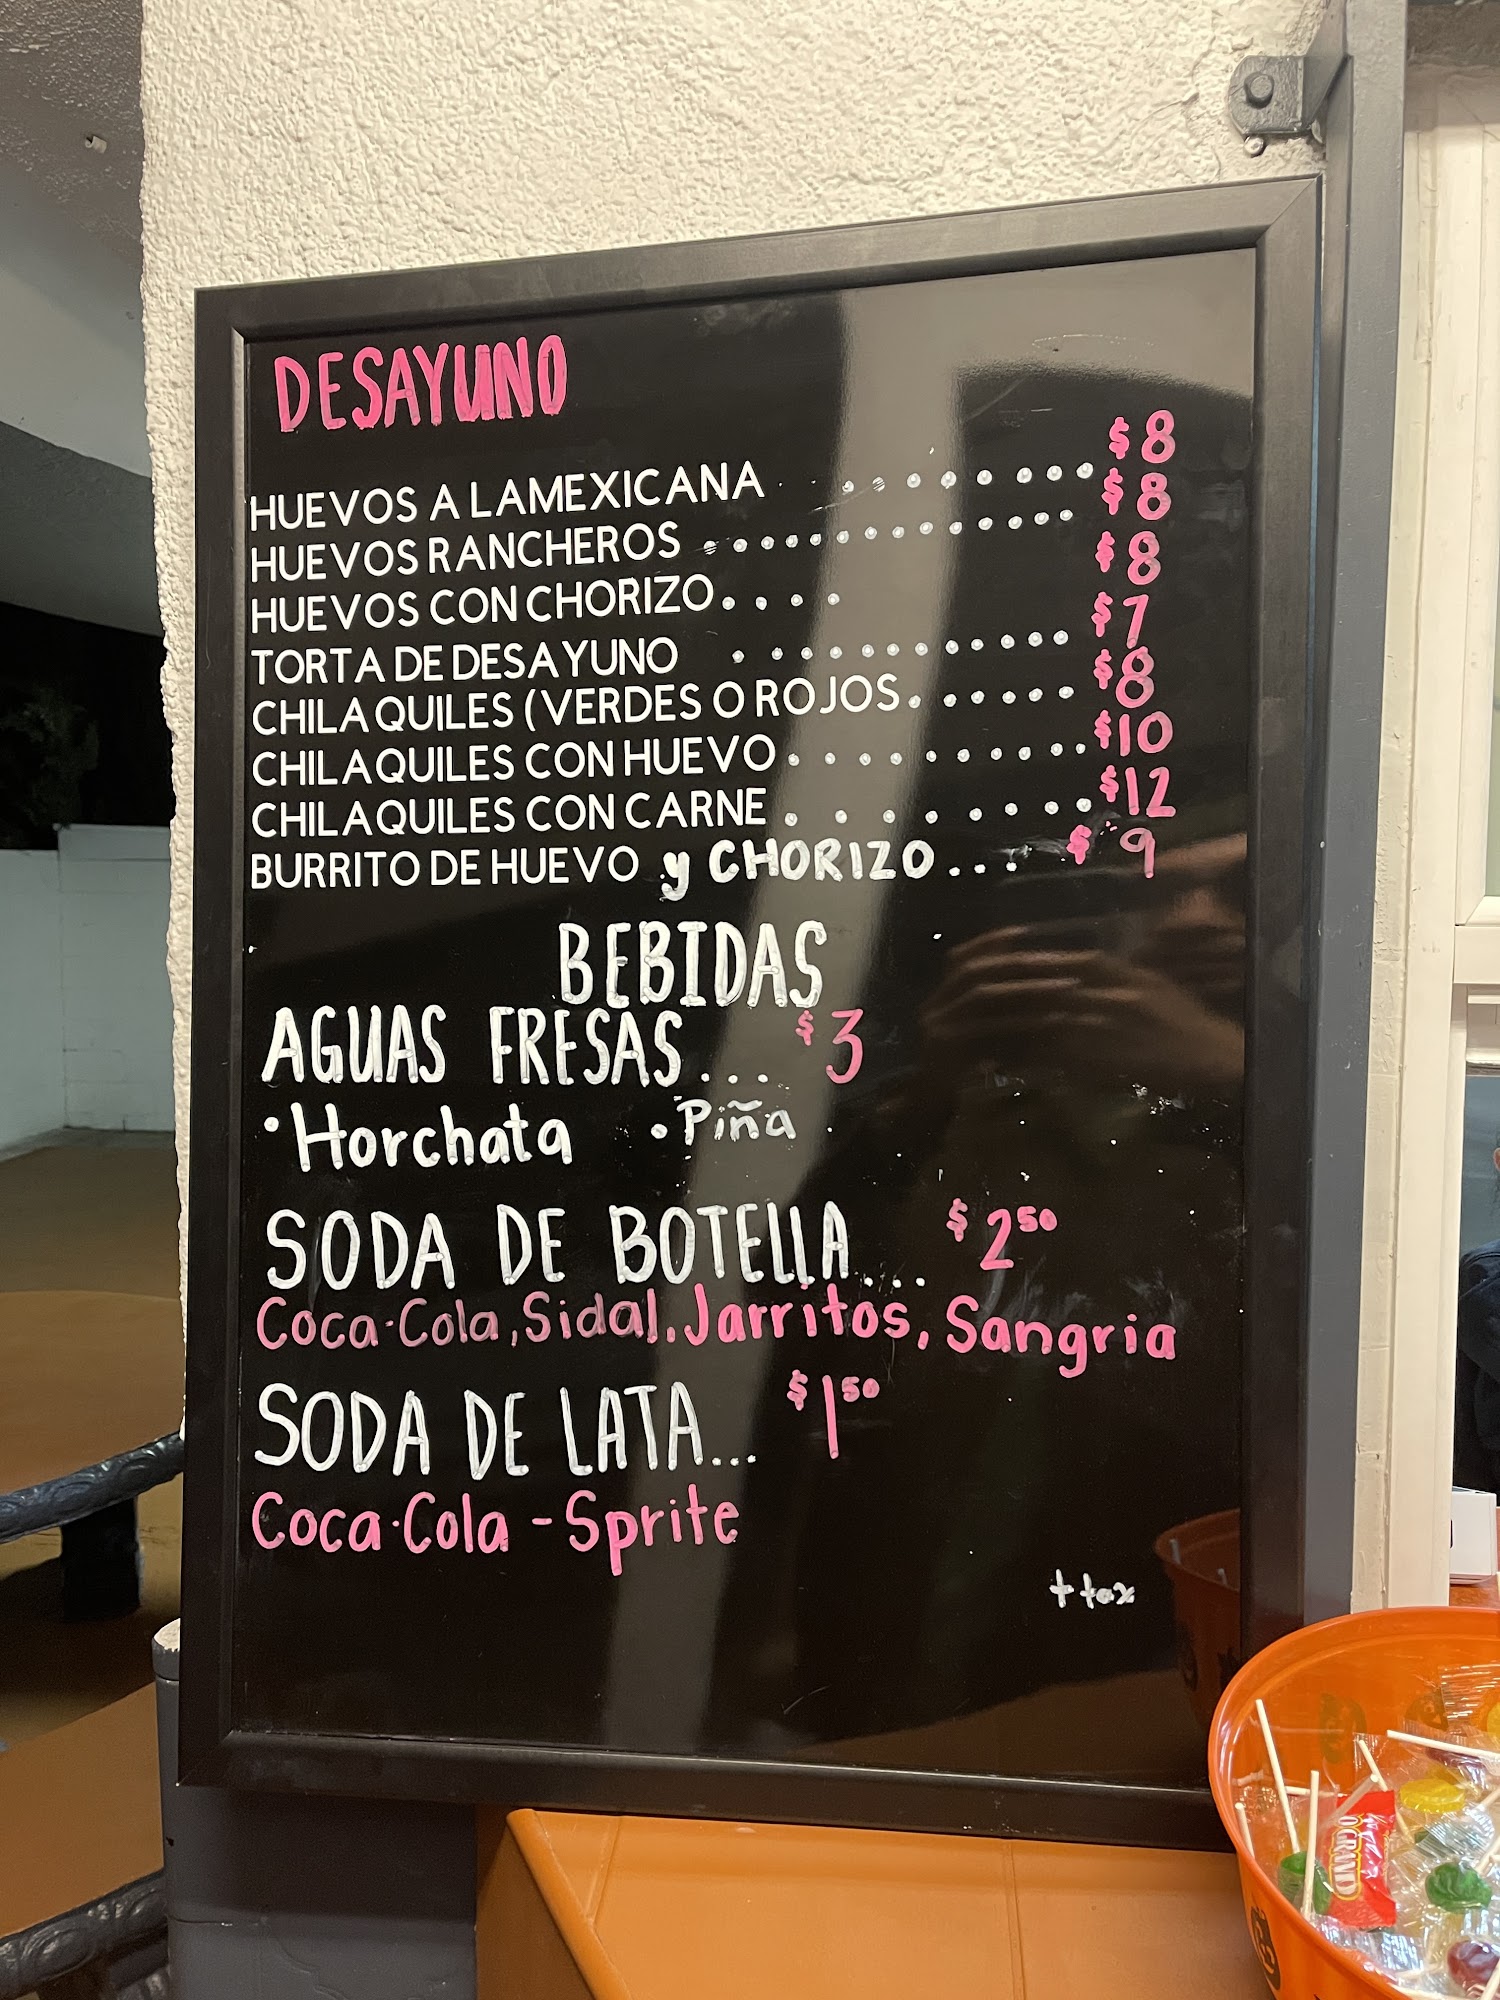 DESAYUNO
HUEVOS A LA MEXICANA . . . . . . . . . $8
HUEVOS RANCHEROS . . . . . . . . . . . . . $8
HUEVOS CON CHORIZO . . . . $8
TORTA DE DESAYUNO . . . . . . . . . . . . $7
CHILAQUILES (VERDES O ROJOS . . . . . . $8
CHILAQUILES CON HUEVO . . . . . . . . . $10
CHILAQUILES CON CARNE . . . . . . . . $12
BURRITO DE HUEVO y CHORIZO . . . . $9
BEBIDAS
AGUAS FRESAS... $3
•Horchata •Piña
SODA DE BOTELLA... $2 50
Coca-Cola, Sidal, Jarritos, Sangria
SODA DE LATA... $1 50
Coca-Cola - Sprite
+ tax